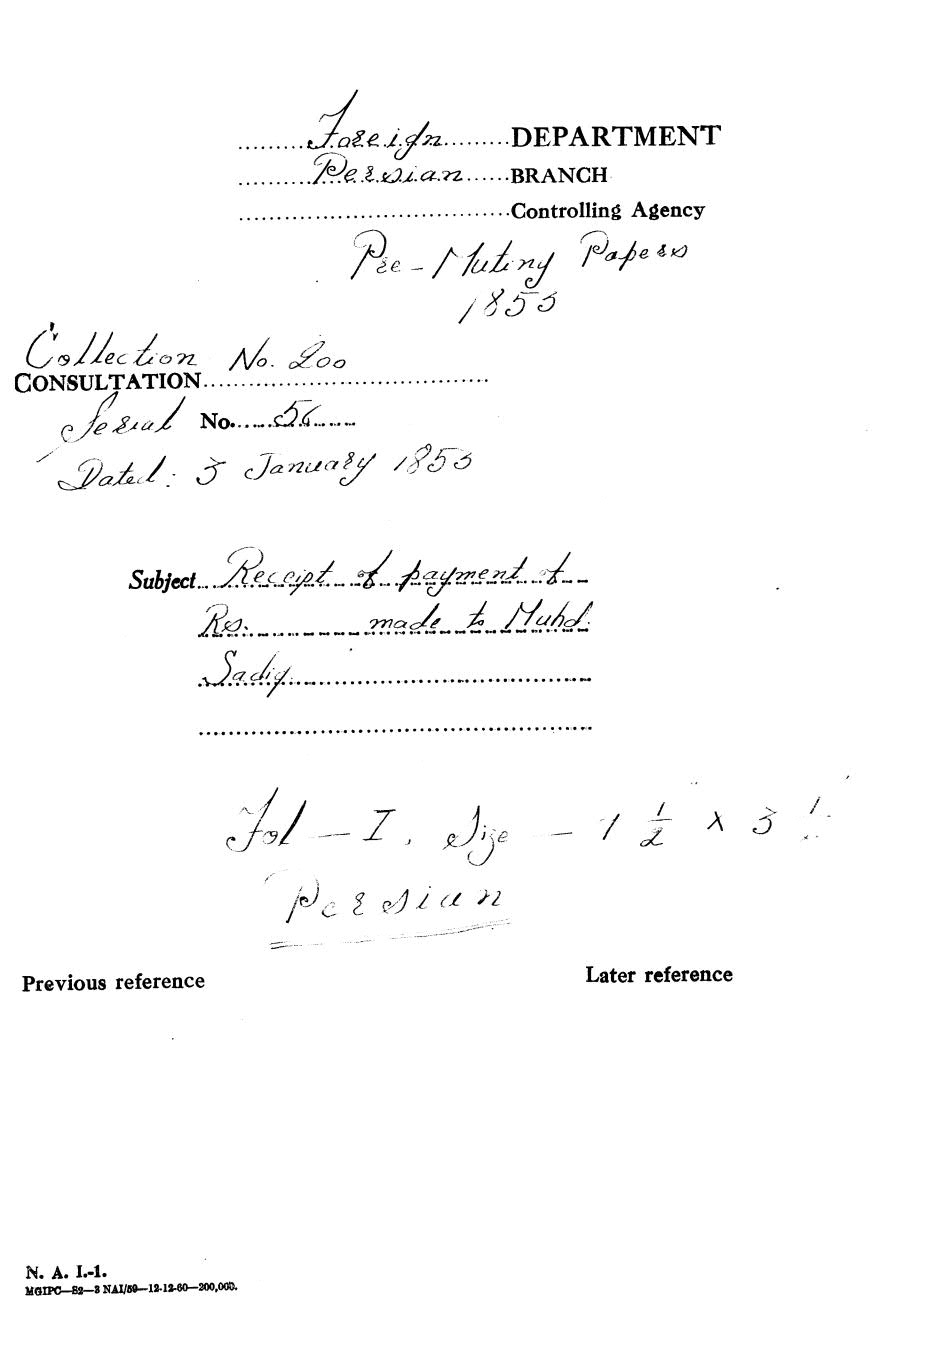 Foreign DEPARTMENT
Persian BRANCH
Controlling Agency
Pre-Mutiny Papers
1853
Collection No. 200
CONSULTATION
Serial No. 56
Dated: 3 January 1853
Subject Receipt of payment of
Res. made to Muhd.
Sadiq
Fol - I, Size - 1 1/2 x 3
Persian
Previous reference Later reference
N. A. I.-1.
MGIPC—S2—3 NAI/59—12-12-60—200,000.